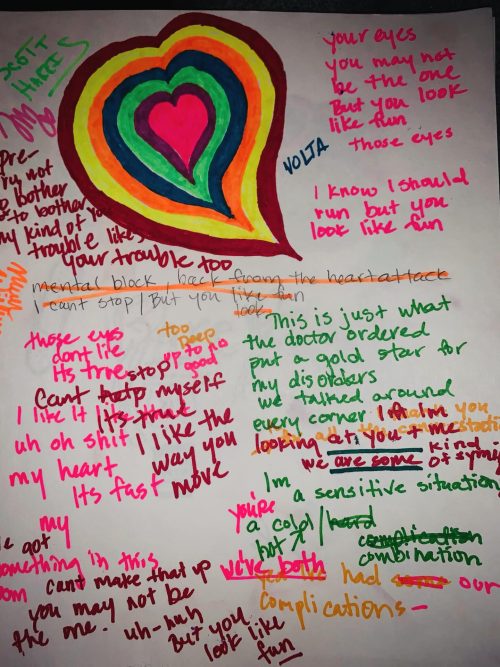 SCOTT
HARRIS
your eyes
you may not
be the one
But you look
like fun
those eyes
VOLTA
I know I should
run but you
look like fun
pre-
try not
to bother
to bother
my kind of
trouble likes
your trouble too
mental block, back from the heart attack
I cant stop / But you like fun
look
those eyes
dont lie
Its true
too
deep
up to no
good
stop
Cant help myself
I like It Its that
uh oh shit
my heart
Its fast
I like the
way you
move
This is just what
the doctor ordered
put a gold star for
my disorders
we talked around
every corner
looking at you + me
we are some kind
of
Im
a sensitive situation
you're
a cold / hard
hot
complication
combination
my
got
something in this
cant make that up
you may not be
the one. uh-huh
But you
look like
fun
we've both
had our
complications